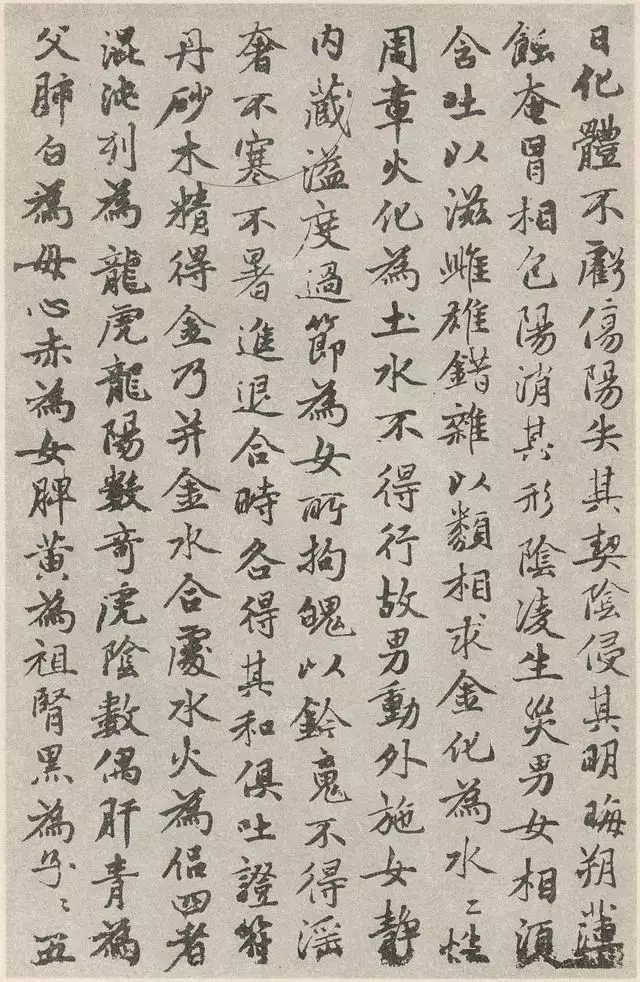 日化體不虧傷陽失其契陰侵其明晦朔薄
蝕奄冒相包陽消其形陰淩生災男女相須
含吐以滋雌雄錯雜以類相求金化為水〻性
周章火化為土水不得行故男動外施女靜
内藏溢度過節為女所拘魄以鈐䰟不得淫
奢不寒不暑進退合時各得其和俱吐證符
丹砂木精得金乃并金水合處水火為侣四者
混沌列為龍虎龍陽數奇虎陰數偶肝青為
父肺白為母心赤為女脾黄為祖腎黑為子〻五